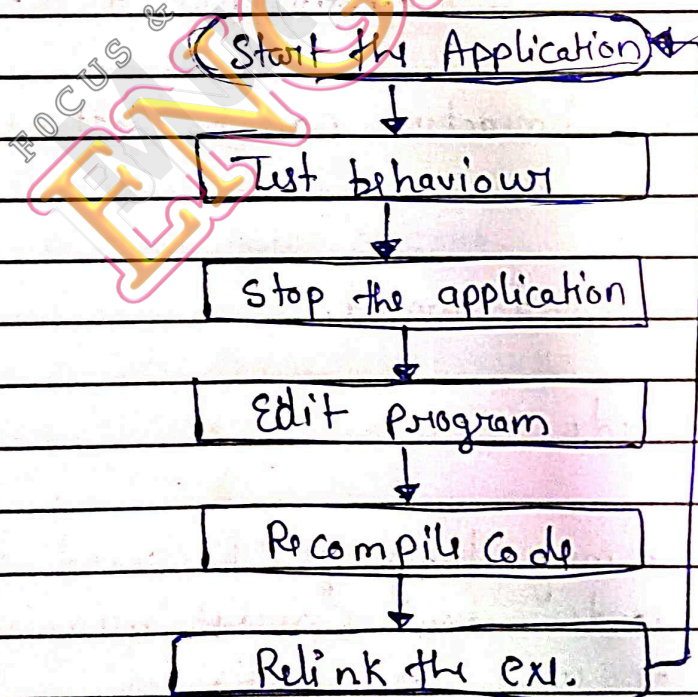 FOCUS &
ENG
Start the Application
Test behaviour
Stop the application
Edit program
Recompile Code
Relink the exe.